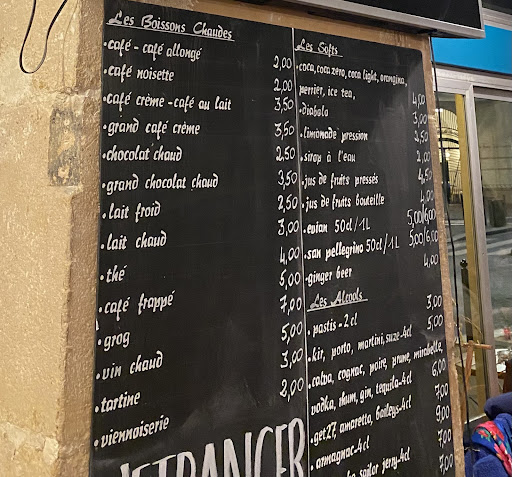 Les Boissons Chaudes
•café - café allongé 2,00
•café noisette 2,00
•café crème - café au lait 3,50
•grand café crème 3,50
•chocolat chaud 2,50
•grand chocolat chaud 3,50
•lait froid 2,50
•lait chaud 3,00
•thé 4,00
•café frappé 5,00
•grog 7,00
•vin chaud 5,00
•tartine 3,00
•viennoiserie 2,00
Les Softs
•coca, coca zero, coca light, orangina,
perrier, ice tea, 4,00
•diabolo 3,00
•limonade pression 2,50
•sirop à l'eau 2,00
•jus de fruits pressés 4,50
•jus de fruits bouteille 4,00
•evian 50cl/1L 5,00/6,00
•san pellegrino 50cl/1L 5,00/6,00
•ginger beer 4,00
Les Alcools
•pastis - 2cl 3,00
•kir, porto, martini, suze-4cl 5,00
•calva, cognac, poire, prune, mirabelle, 6,00
vodka, rhum, gin, tequila-4cl 7,00
•get27, amaretto, baileys-4cl 9,00
•armagnac-4cl 7,00
sailor jerry-4cl 7,00